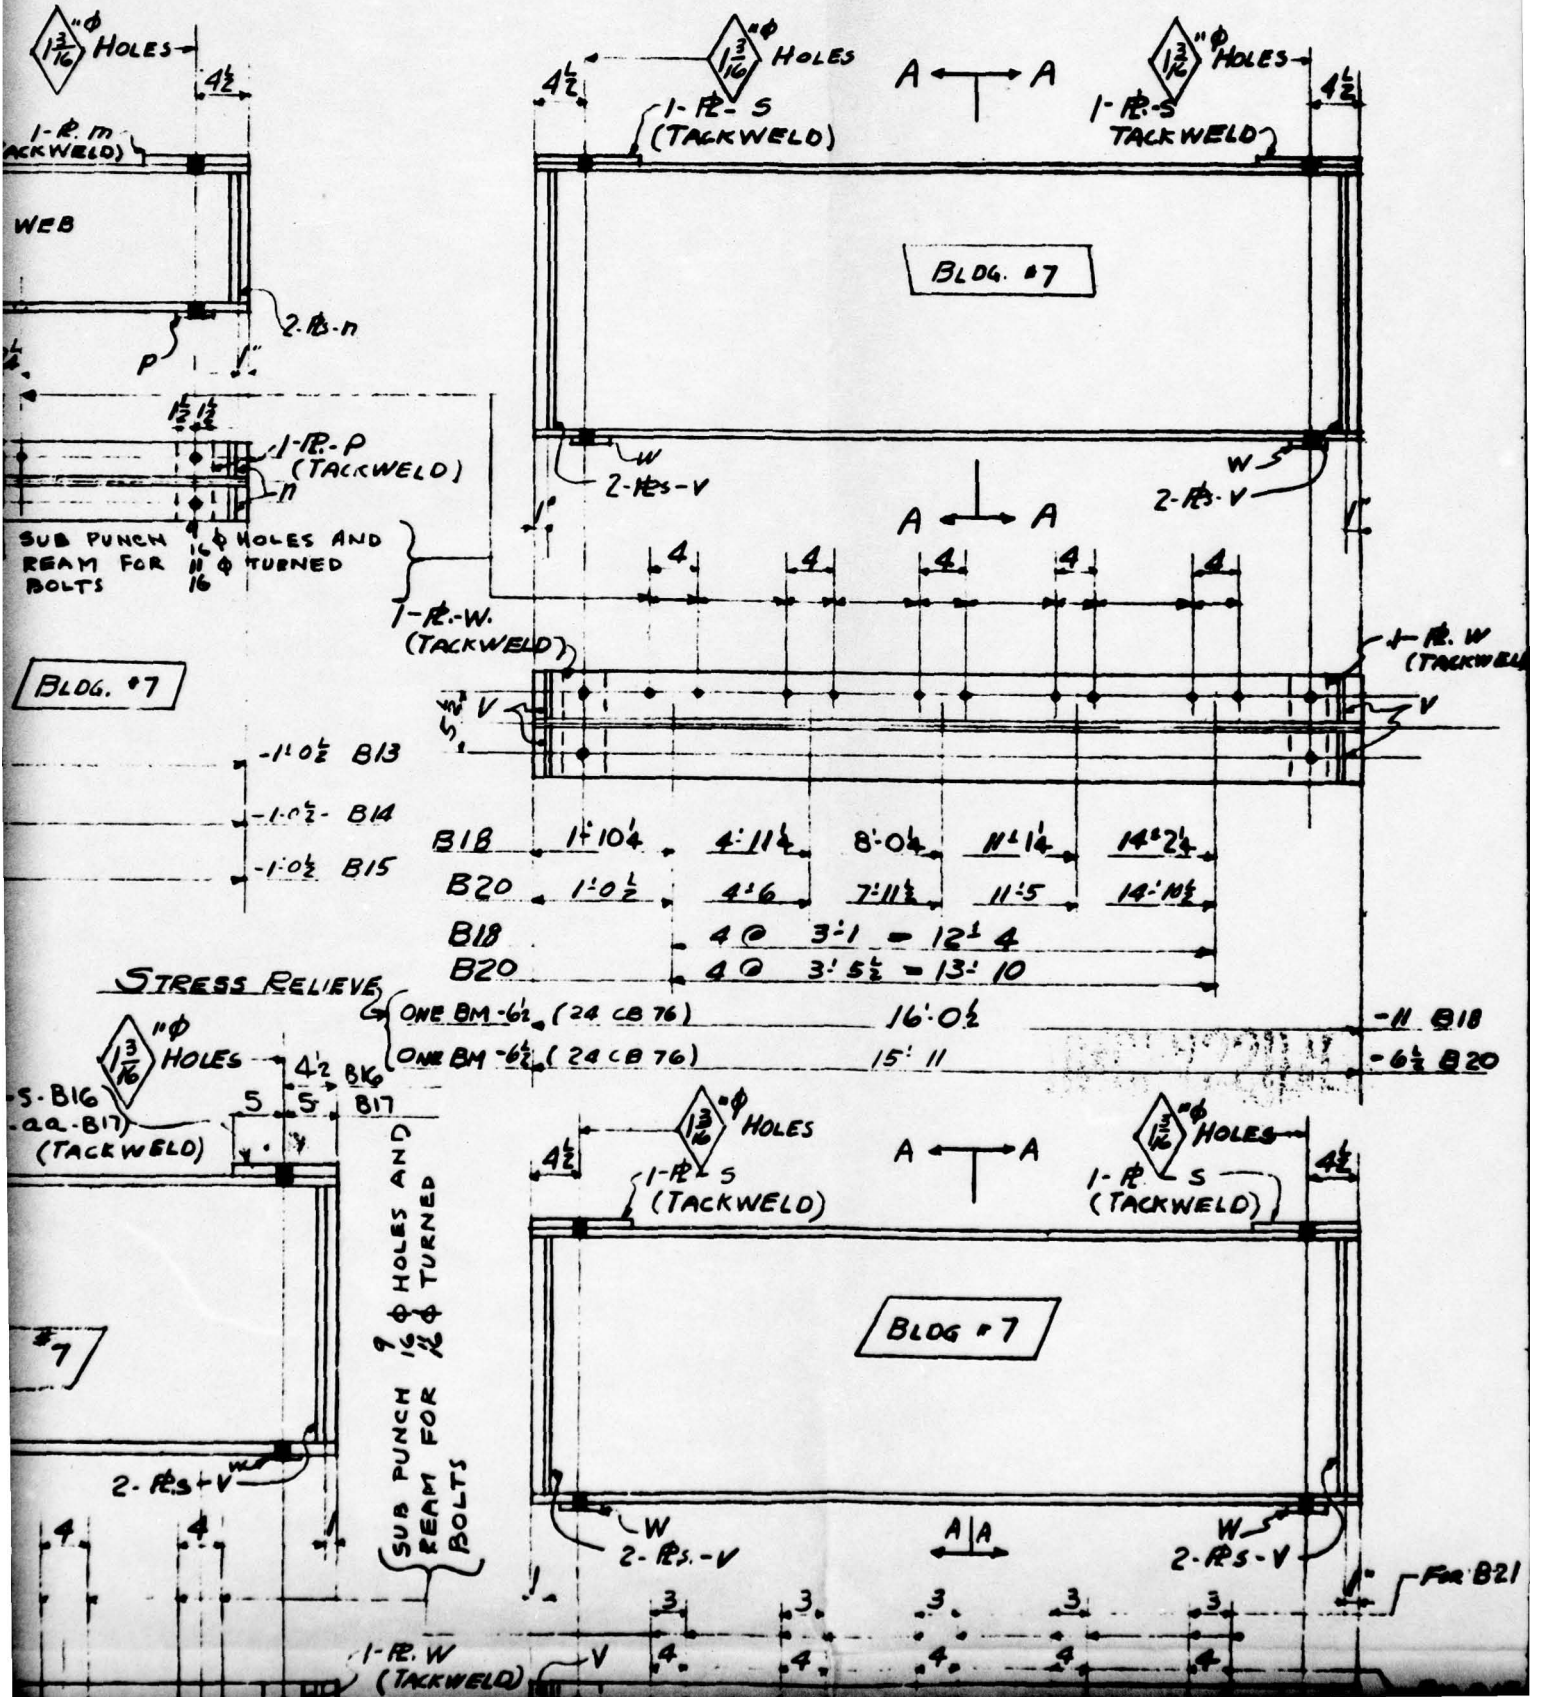 1 3/16 "φ HOLES
4 1/2
1-PL. m
ACKWELD)
WEB
2-PLs-n
P
1"
1 1/2 1 1/2
1-PL.-P
(TACKWELD)
n
SUB PUNCH 9/16 φ HOLES AND
REAM FOR 11/16 φ TURNED
BOLTS
BLDG. #7
-1'-0 1/2 B13
-1-0 1/2- B14
-1-0 1/2 B15
1 3/16 "φ HOLES
4 1/2
1-PL-S
(TACKWELD)
A A
1 3/16 "φ HOLES
4 1/2
1-PL.-S
TACKWELD
BLDG. #7
W
2-PLs-V
1"
W
2-PLs-V
1"
A A
4 4 4 4 4
1-PL.-W.
(TACKWELD)
1-PL. W
(TACKWEL
5 1/2
V
V
B18 1-10 1/4 4-11 1/4 8-0 1/4 11-1 1/4 14-2 1/4
B20 1-0 1/2 4-6 7-11 1/2 11-5 14-10 1/2
B18 4 @ 3-1 = 12-4
B20 4 @ 3-5 1/2 = 13-10
STRESS RELIEVE
ONE BM-6 1/2 (24 CB 76) 16'-0 1/2 -11 B18
ONE BM-6 1/2 (24 CB 76) 15'-11 -6 1/2 B20
1 3/16 "φ
HOLES
4 1/2 B16
5 5 B17
-S-B16
-aa-B17)
(TACKWELD)
#7
W
2-PLs-V
4 4 1
SUB PUNCH 9/16 φ HOLES AND
REAM FOR 11/16 φ TURNED
BOLTS
1-PL. W
(TACKWELD)
1 3/16 "φ HOLES
4 1/2
1-PL-S
(TACKWELD)
A A
1 3/16 "φ HOLES
4 1/2
1-PL-S
(TACKWELD)
BLDG #7
W
2-PLs.-V
1
A A
W
2-PLs-V
1"
FOR B21
3 3 3 3 3
4 4 4 4 4
V